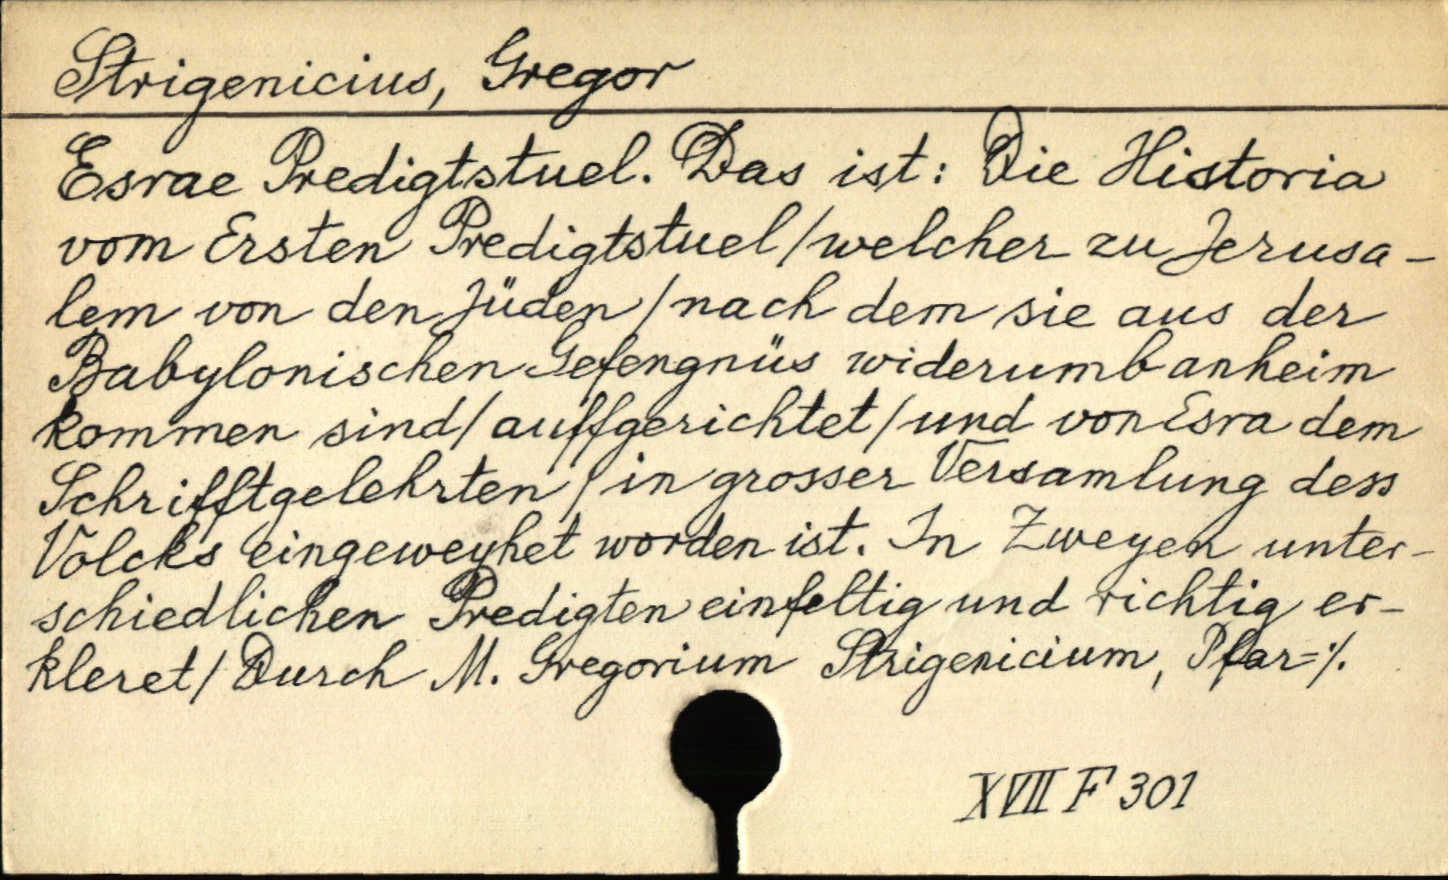 Strigenicius, Gregor
Esrae Predigtstuel. Das ist: Die Historia
vom Ersten Predigtstuel/welcher zu Jerusa-
lem von den Jüden/nach dem sie aus der
Babylonischen Gefengnüs widerumb anheim
kommen sind/auffgerichtet/und von Esra dem
Schrifftgelehrten/in grosser Versamlung dess
Volcks eingeweyhet worden ist. In Zweyen unter-
schiedlichen Predigten einfeltig und richtig er-
kleret/Durch M. Gregorium Strigenicium, Pfar=·/.
XVII F 301